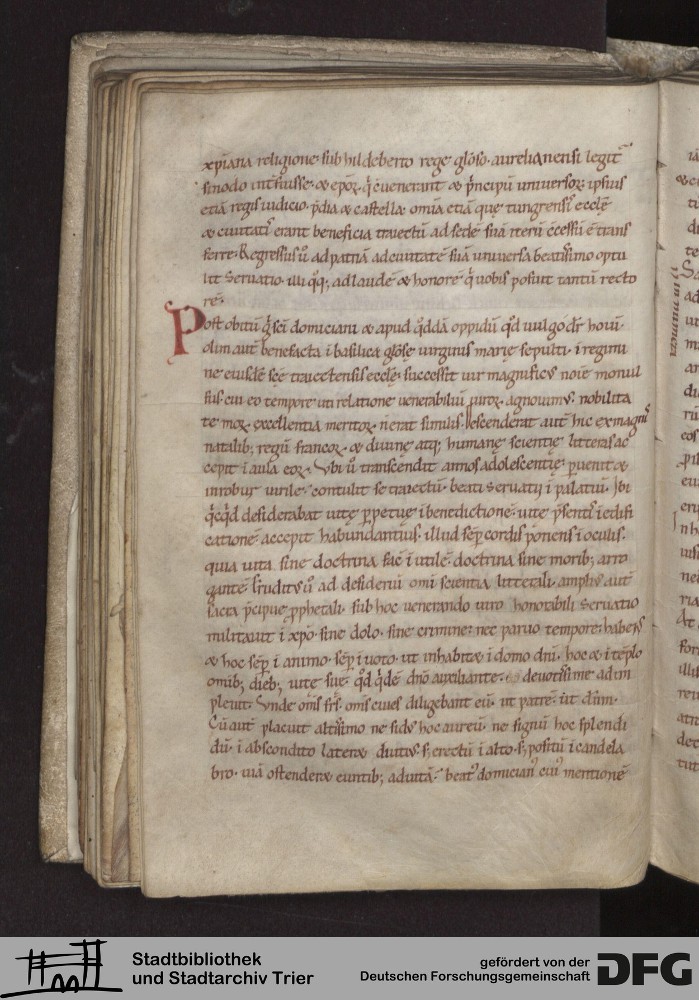 xp̄iana religione sub hildeberto rege gl̄oso. aurelianensi legit᷑
sinodo int̄fuisse. & ep̄oꝝ q̄ cvenerant & p̄ncipū universoꝝ ipsius
etiā regis iudicio. p̄dia & castella omīa etiā quę tungrensi ęccl̄ę
& civitati erant beneficia traiectū ad sedē suā iterū c̄cessū ē trans
ferre. Regressus ū ad patriā ad civitatē suā universa beatissimo optu
lit Servatio. illi qq; ad laudē & honorē q̄ vobis posuit tantū recto
rē.
Post obitū ḡ sc̄i domiciani & apud q̄ddā oppidū q̄d uulgo dr̄ hoiū.
olim aut̄ benefacta ī basilica gl̄osę virginis marię sepulti. ī regimi
ne eiusdē sc̄ę traiectensis ecclę. successit vir magnificꝰ noīe monul
fus. cui eo tempore uti relatione venerabiliū viroꝝ agnovimꝰ. nobilita
te moꝝ. excellentia meritoꝝ. n̄ erat similis. Descenderat aut̄ hic ex magnis
natalib; regū francoꝝ. & divinę atq; humanę scientię litteras ac
cepit ī aula eoꝝ. Vbi ū transcendit annos adolescentię. p̄venit &
in robur virile. contulit se traiectū. beati Servatii ī palatiū. Ibi
q̄cq̄d desiderabat vitę p̄petuę. ī benedictione. vite p̄senti ī edifi
catione. accepit habundantius. illud sēp cordis ponens ī oculis.
quia vita sine doctrina facē inutilē. doctrina sine morib; arro
gantē. Eruditꝰ ū ad desideriū omī scientia litterali. ampliꝰ aut̄
facta p̄cipue p̄phetali. sub hoc venerando viro honorabili Servatio
militavit ī xp̄o. sine dolo. sine crimine. nec parvo tempore. habens
& hoc sēp ī animo. sēp ī voto. ut inhabitæ ī domo dn̄i. hoc & ī tēplo
omīb; dieb; vite sue. q̄d q̄dē dn̄o auxiliante. devotissime adim
plevit. Vnde om̄s fr̄s. om̄s cives diligebant eū. ut patrē. ut dn̄m.
Cū aut̄ placuit altissimo ne sidꝰ hoc aureū. ne signū hoc splendi
dū. ī abscondito lateræ diutiꝰ. s; erectū ī alto. s; positū ī candela
bro. viā ostenderæ euntib; ad vitā. beatꝰ domicianꝰ cuiꝰ mentionē
Stadtbibliothek
und Stadtarchiv Trier
gefördert von der
Deutschen Forschungsgemeinschaft
DFG